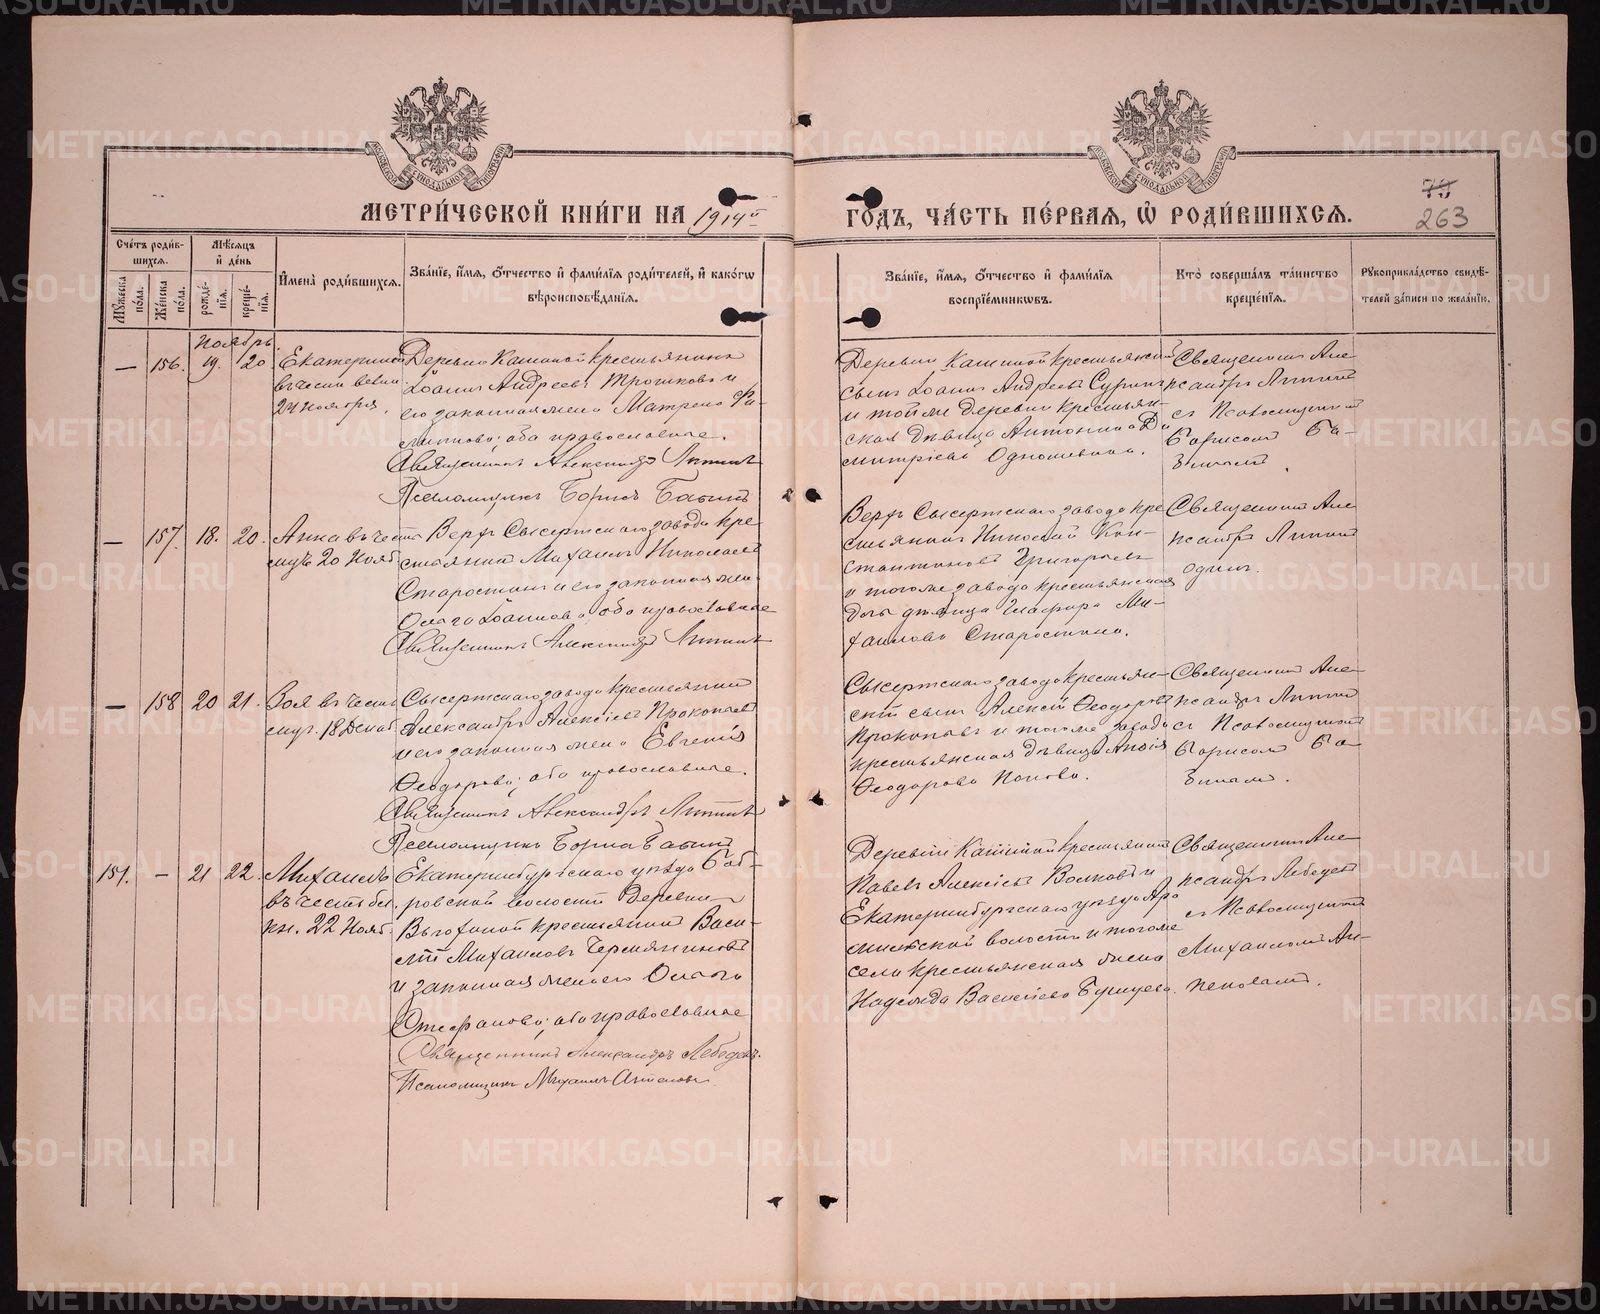 МЕТРИЧЕСКОЙ КНИГИ НА 1914й ГОДЪ, ЧАСТЬ ПЕРВАЯ, Ѡ РОДИВШИХСЯ.
263
Счетъ родившихся.
Мужеска пола.
Женска пола.
Мѣсяцъ и день
рожденія.
крещенія.
Имена родившихся.
Званіе, имя, отчество и фамилія родителей, и какогω вѣроисповѣданія.
Званіе, имя, отчество и фамилія воспріемниковъ.
Кто совершалъ таинство крещенія.
Рукоприкладство свидѣтелей записи по желанію.
Ноябрь.
— 156. 19. 20
Екатерина
въ честь велик.
24 ноября.
Деревни Кашиной крестьянинъ
Іоаннъ Андреевъ Трошковъ и
его законная жена Матрена Фи-
липпова; оба православные.
Священникъ Александръ
Псаломщикъ Борисъ
Деревни Кашиной крестьянскій
сынъ Іоаннъ Андреевъ Суринъ
и той же деревни крестьян-
ская дѣвица Антонина Ди-
митріева
Священникъ Але-
ксандръ
съ Псаломщикомъ
Борисомъ
— 157. 18. 20.
Анна въ честь
муч. 20 Нояб.
Верхъ Сысертскаго завода кре-
стьянинъ Михаилъ Николаевъ
Старостинъ и его законная жена
Ольга Іоаннова; оба православные
Священникъ Александръ
Верхъ Сысертскаго завода кре-
стьянинъ Николай Кон-
стантиновъ Григорьевъ
и того же завода крестьянская
дочь дѣвица Глафира Ми-
хаилова Старостина.
Священникъ Але-
ксандръ
одинъ.
— 158 20 21.
Зоя въ честь
муч. 18 Декаб.
Сысертскаго завода крестьянинъ
Александръ Алексіевъ Прокопьевъ
и его законная жена Евгенія
Ѳеодорова; оба православные.
Священникъ Александръ
Псаломщикъ Борисъ
Сысертскаго завода крестьян-
скій сынъ Алексій Ѳеодоровъ
Прокопьевъ и того же завода
крестьянская дѣвица
Ѳеодорова Попова.
Священникъ Але-
ксандръ
съ Псаломщикомъ
Борисомъ
151. — 21 22.
Михаилъ
въ честь бл.
кн. 22 Нояб.
Екатеринбургскаго уѣзда Боб-
ровской волости Деревни
крестьянинъ Васи-
лій Михаиловъ
и законная жена его Ольга
Стефанова; оба православные
Священникъ Александръ Лебедевъ.
Псаломщикъ Михаилъ
Деревни Кашиной крестьянинъ
Павелъ Алексіевъ Волковъ и
Екатеринбургскаго уѣзда Ара-
мильской волости и того же
села крестьянская жена
Надежда Васильева
Священникъ Але-
ксандръ Лебедевъ
съ Псаломщикомъ
Михаиломъ
METRIKI.GASO-URAL.RU